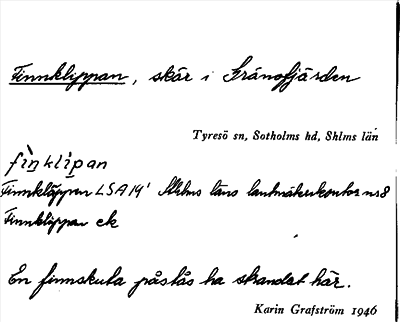 Finnklippan, skär i Gränöfjärden
Tyresö sn, Sotholms hd, Shlms län
fìn̥klìpan
Finnkläppen LSA 19' Sthlms läns lantmäterikontor nr 8
Finnklippan ek
En finnskuta påstås ha strandat här.
Karin Grafström 1946